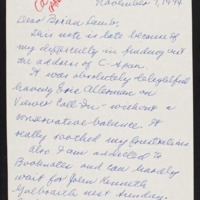 November 7, 1994
Dear Brian Lamb:
This note is late because of
my difficulty in finding out
the address of C-Span.
It was absolutely delightful
having Eric Alterman on
Viewer Call-In - without a
conservative balance. It
really soothed my frustrations
Also I am addicted to
Booknotes and can hardly
wait for John Kenneth
Galbraith next Sunday.